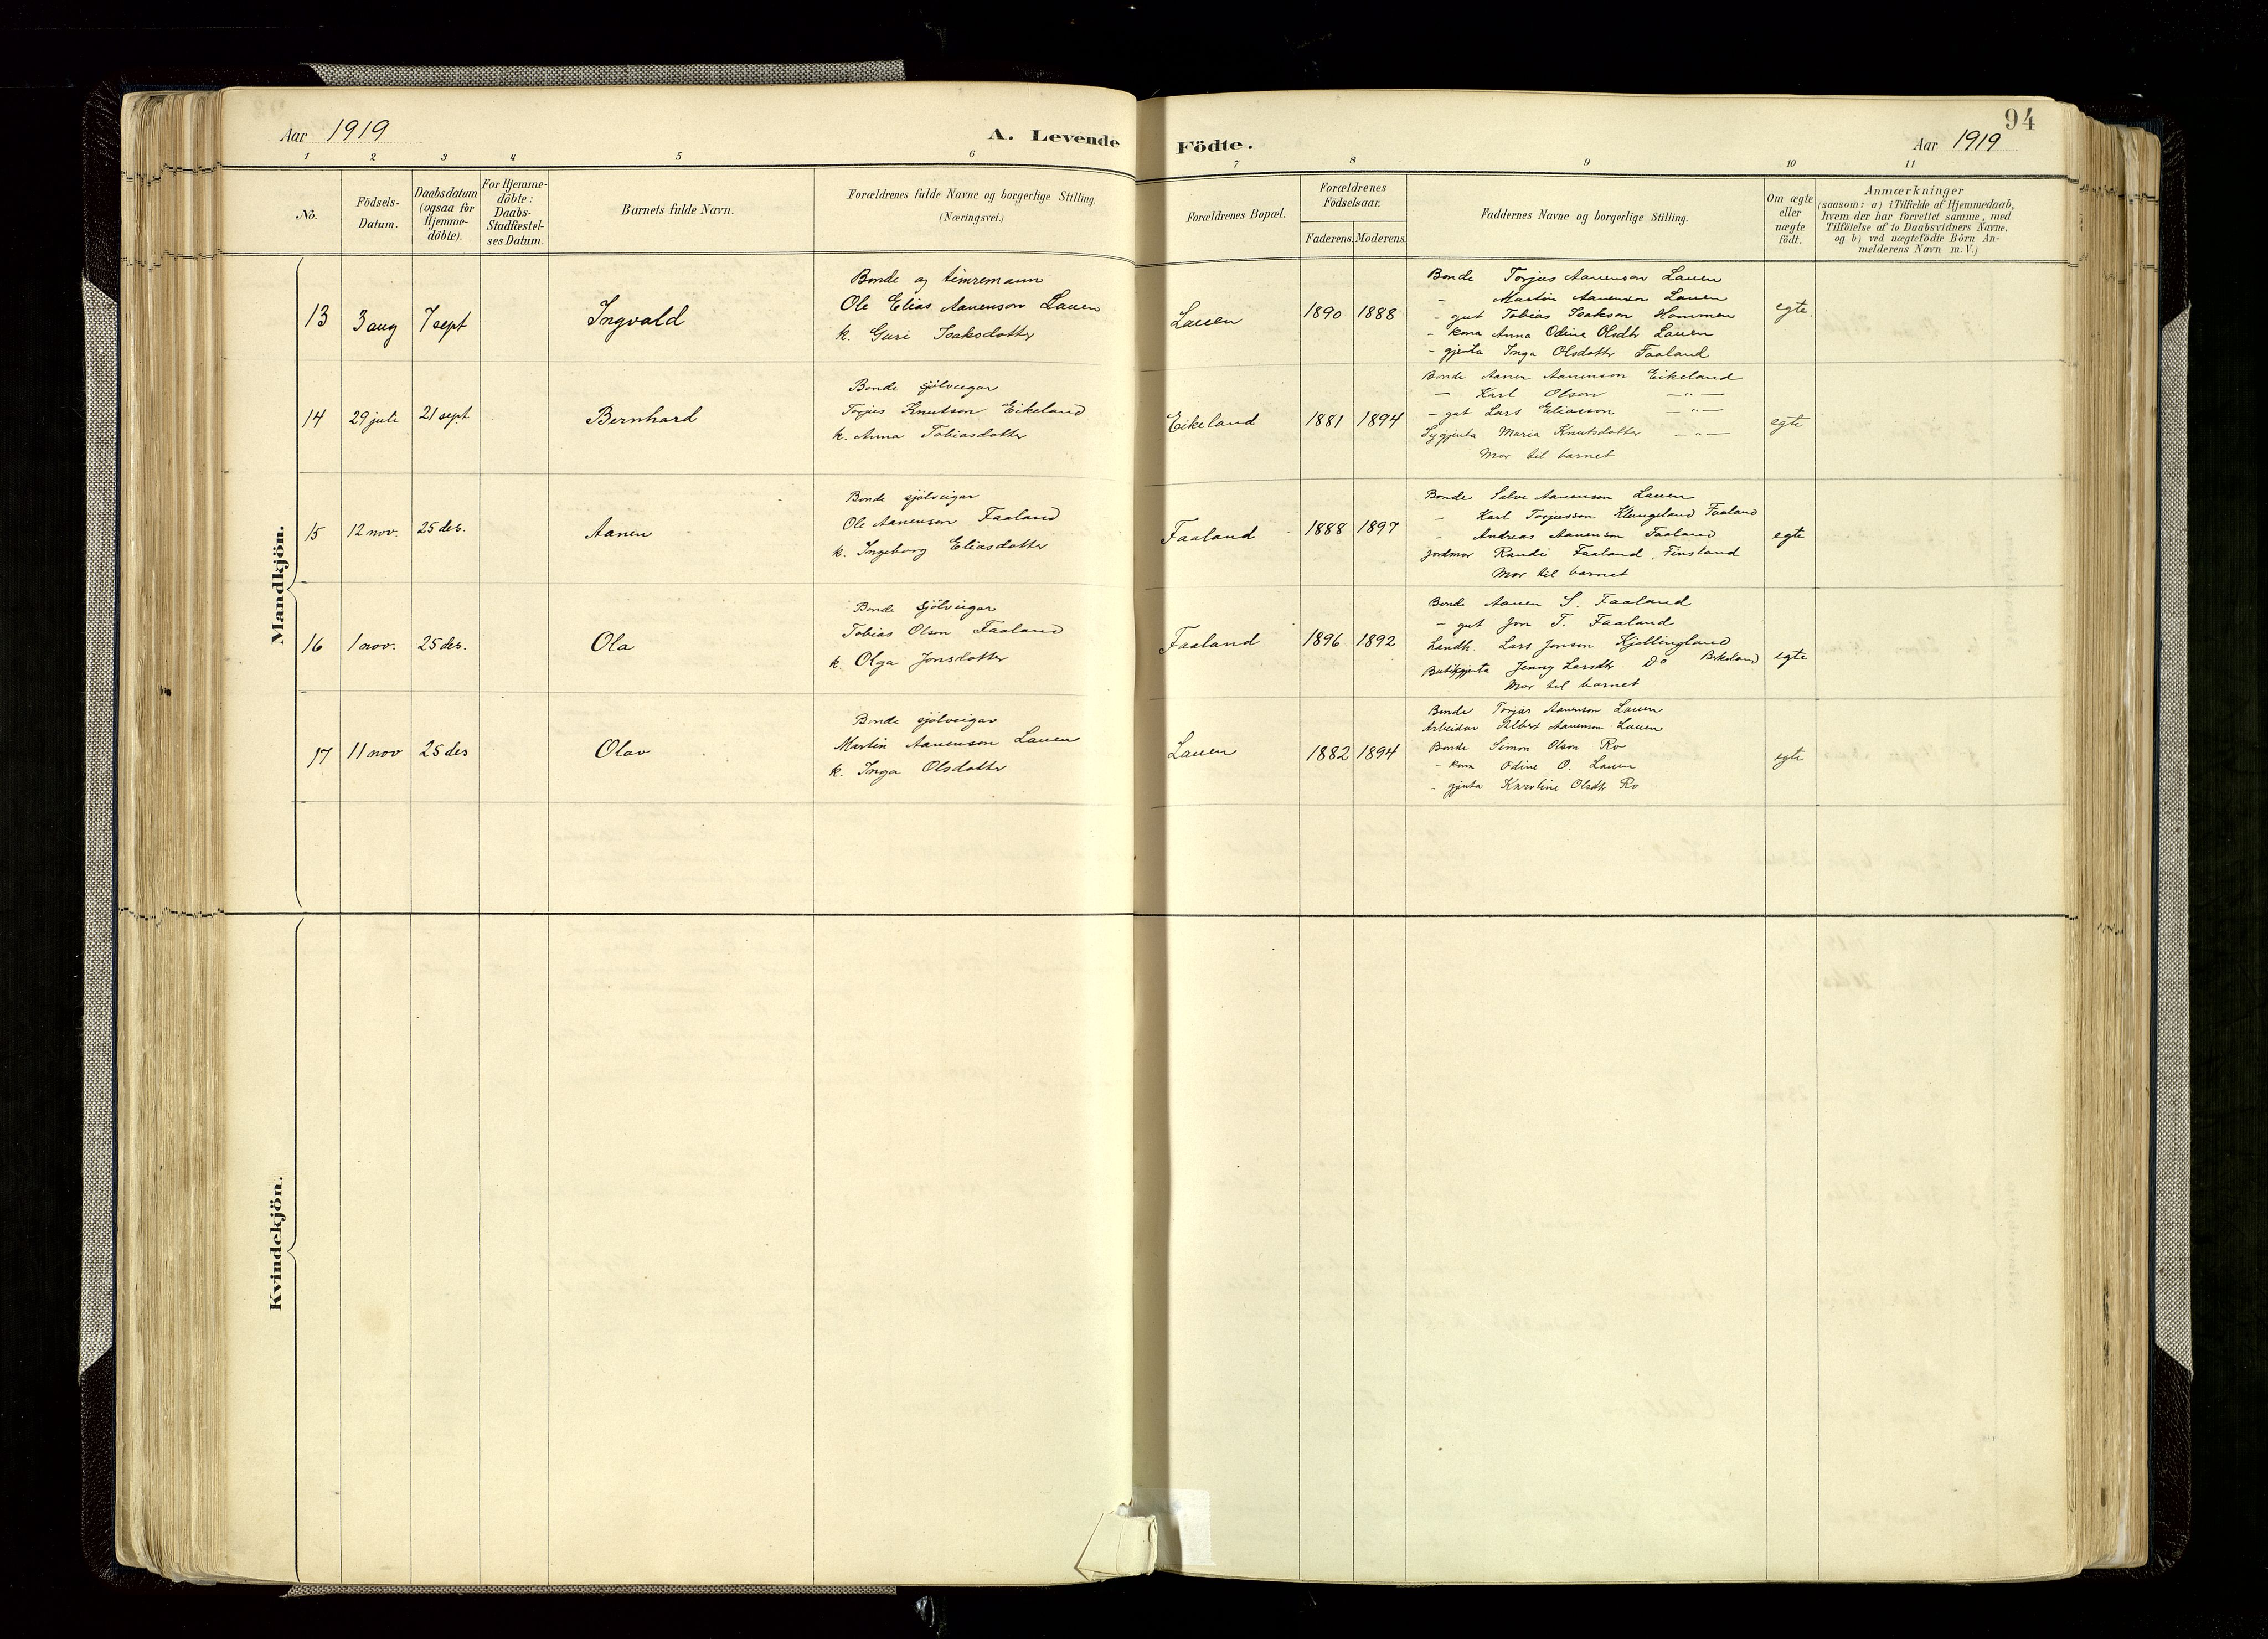 94
Aar 1919
A. Levende Födte.
Aar 1919
1 2 3 4 5 6 7 8 9 10 11
No.
Födsels-
Datum.
Daabsdatum
(ogsaa for
Hjemme-
döbte).
For Hjemme-
döbte:
Daabs-
Stadfæstel-
ses Datum.
Barnets fulde Navn.
Forældrenes fulde Navne og borgerlige Stilling.
(Næringsvei.)
Forældrenes Bopæl.
Forældrenes
Födselsaar.
Faderens. Moderens.
Faddernes Navne og borgerlige Stilling.
Om ægte
eller
uægte
födt.
Anmærkninger
(saasom: a) i Tilfælde af Hjemmedaab,
hvem der har forrettet samme, med
Tilföielse af to Daabsvidners Navne,
og b) ved uægtefödte Börn An-
melderens Navn m. V.)
Mandkjön.
13 3 aug 7 sept Ingvald
Bonde og timremann
Ole Elias Aanenson Lauen
k. Guri Isaksdotter
Lauen 1890 1888
Bonde Torjus Aanenson Lauen
- Martin Aanenson Lauen
- gut Tobias Isakson Hommen
- kona Anna Odine Olsdtr Lauen
- gjenta Inga Olsdotter Faaland
egte.
14 29 juli 21 sept Bernhard
Bonde sjölveigar
Torjus Knutson Eikeland
k. Anna Tobiasdotter
Eikeland 1881 1894
Bonde Aanen Aanenson Eikeland
— Karl Olson —"—
- gut Lars Eliasson —"—
Sygjenta Maria Knutsdotter —"—
Mor til barnet
egte
15 12 nov. 25 des. Aanen
Bonde sjölveigar
Ole Aanenson Faaland
k. Ingeborg Eliasdotter
Faaland 1888 1897
Bonde Salve Aanenson Lauen
- Karl Torjusson Klungeland Faaland
- Andreas Aanenson Faaland
Jordmor Randi Faaland, Finsland
Mor til barnet
egte
16 1 nov. 25 des. Ola
Bonde sjölveigar
Tobias Olson Faaland
k. Olga Jonsdotter
Faaland 1896 1892
Bonde Aanen S. Faaland
- gut Jon T. Faaland
Landh. Lars Jonson Kjellingland
Butikgjenta Jenny Larsdtr Do
Mor til barnet
egte
17 11 nov 25 des Olav
Bonde sjölveigar
Martin Aanenson Lauen
k. Inga Olsdotter
Lauen 1882 1894
Bonde Torjus Aanenson Lauen
Arbeidar Albert Aanenson Lauen
Bonde Simon Olson Ro
- kona Odine O. Lauen
- gjenta Karoline Olsdtr Ro
egte
Kvindekjön.